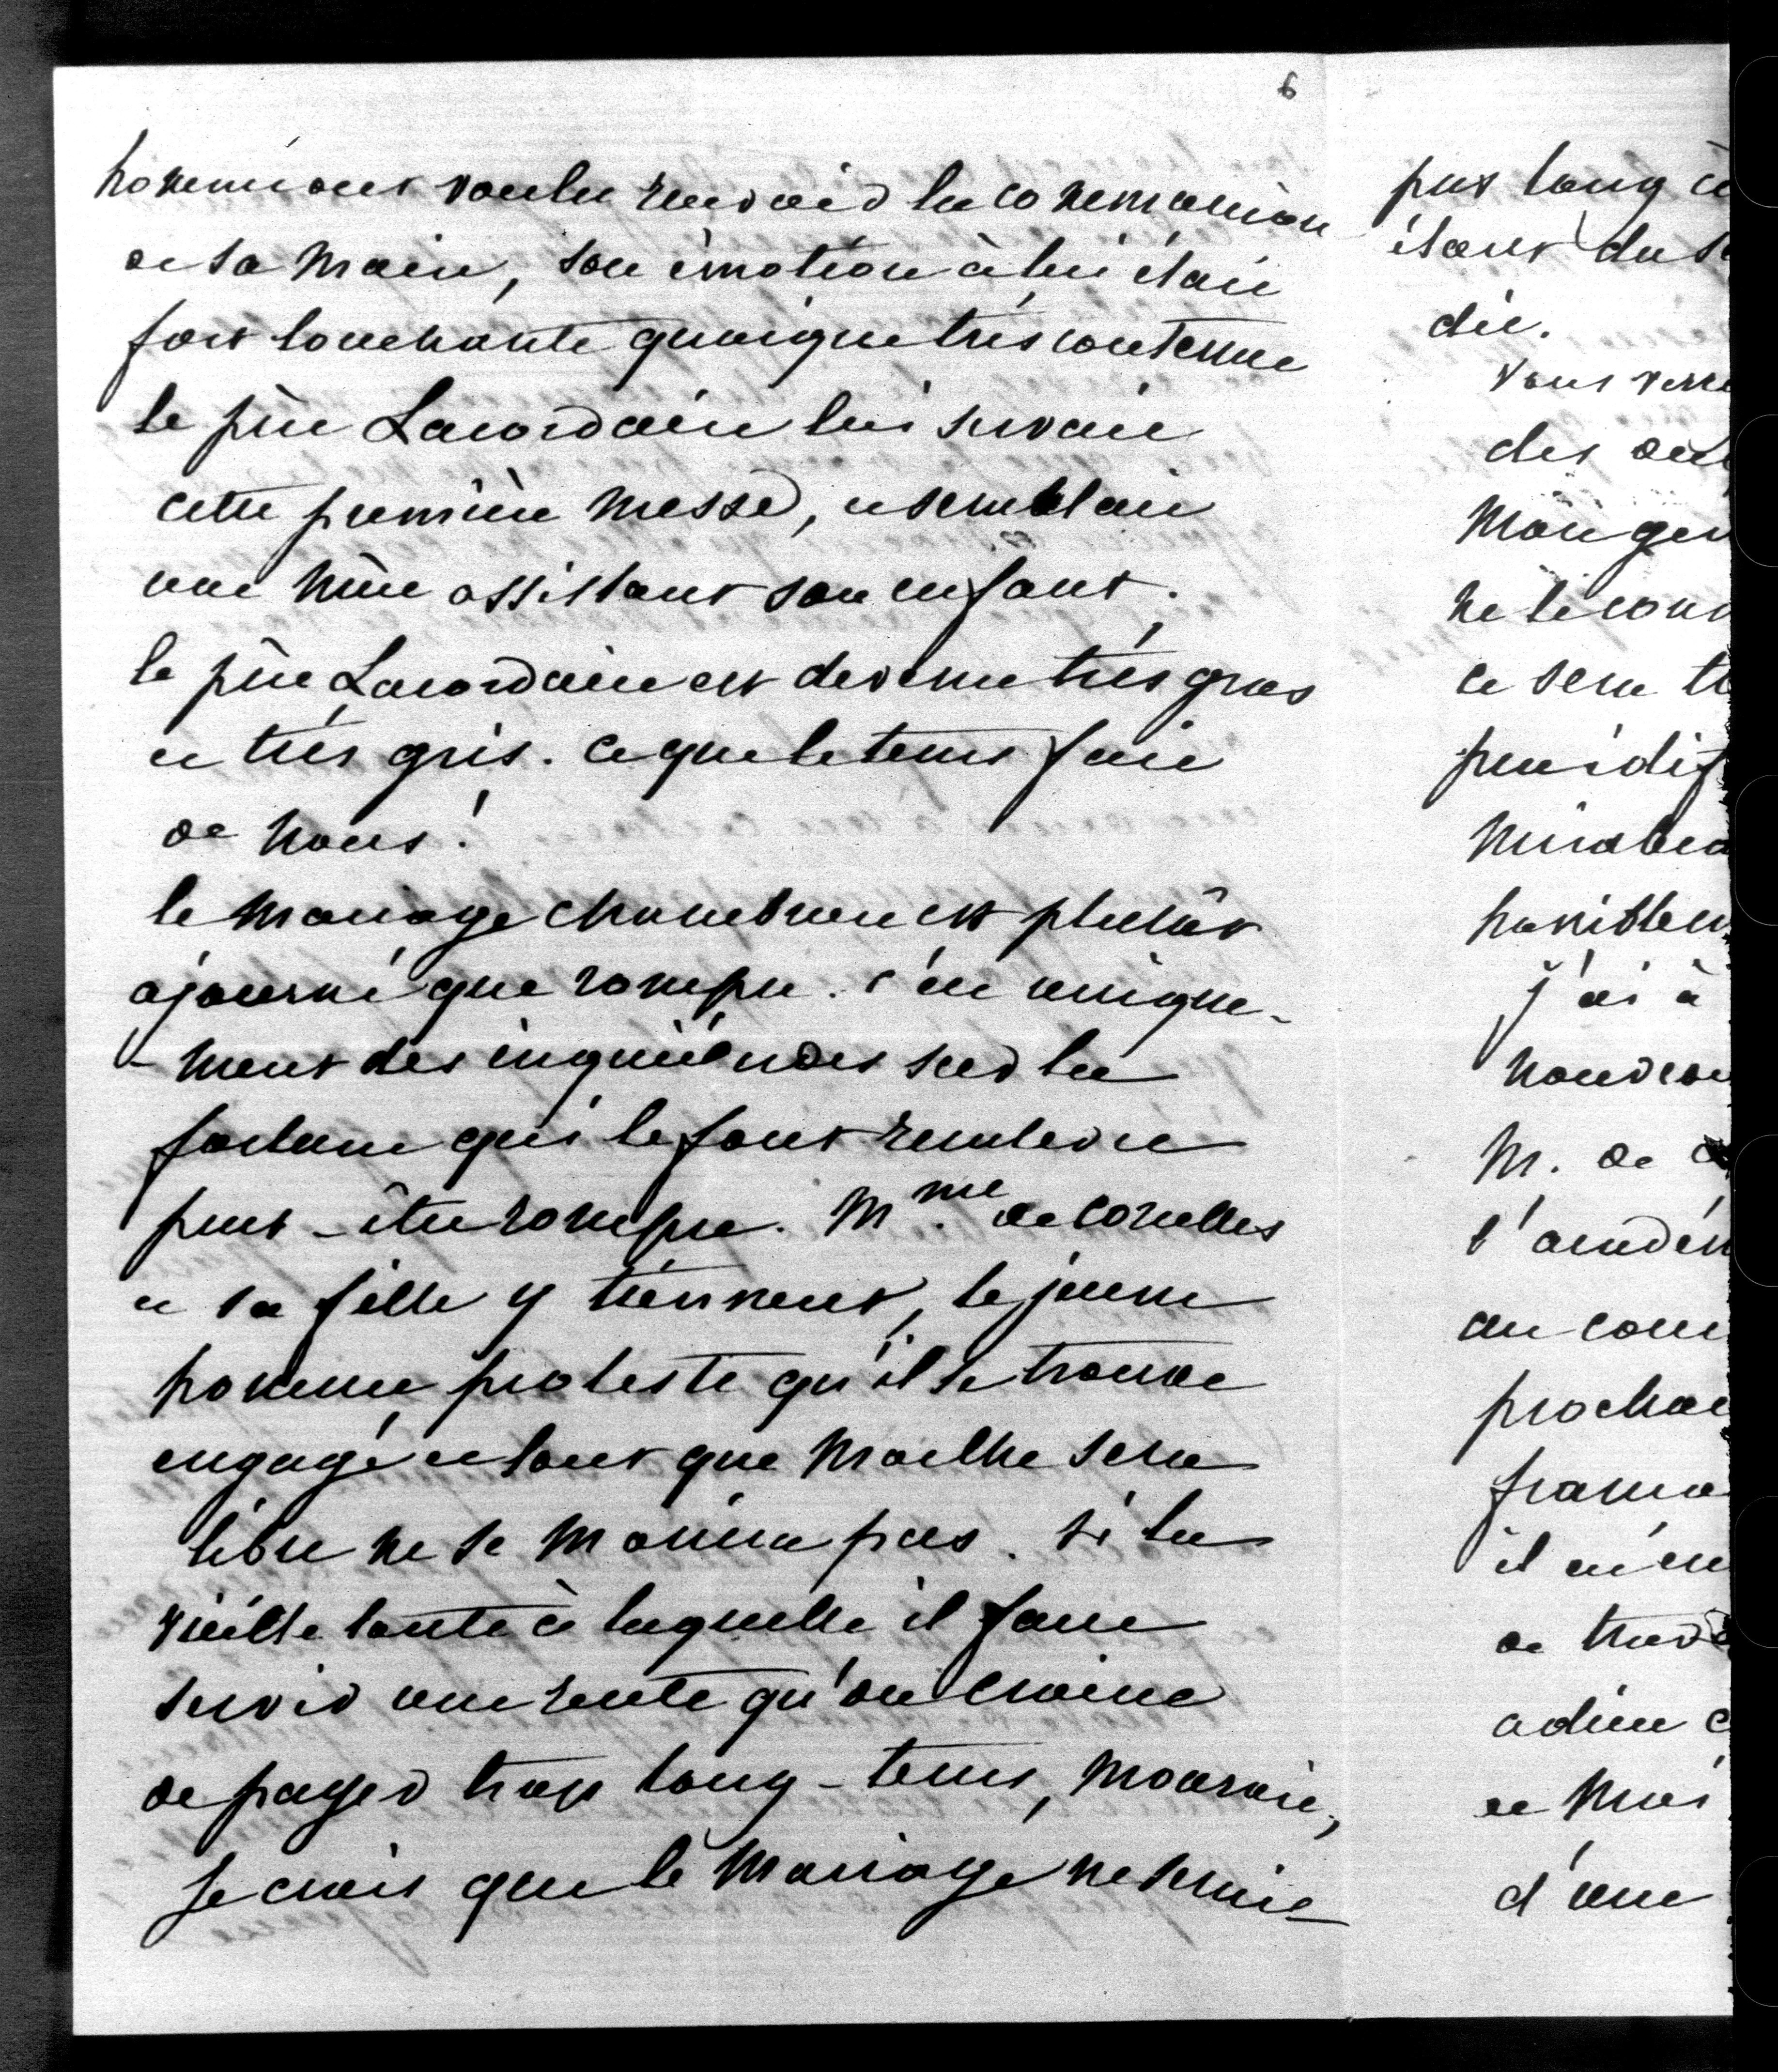 6
hommes ont voulu recevoir la communion
de sa main, son émotion à lui était
fort touchante quoique très contenue
le père Lacordaire lui servait
cette première messe, et semblait
une mère assistant son enfant.
le père Lacordaire est devenu très gros
et très gris. ce que le tems fait
de nous!
le mariage Chambrun est plutôt
ajourné que rompu. c'est unique-
-ment des inquiétudes sur la
fortune qui le font remettre
peut-être rompre. Mme. de Corcelles
et sa fille y tiennent, le jeune
homme proteste qu'il se trouve
engagé et tant que Marthe sera
libre ne se mariera pas. si la
vieille tante à laquelle il faut
servir une rente qu'on craint
de payer trop long-tems, mourait,
je crois que le mariage ne serait
pas long à
étant du
dit.
vous verre
des
Mon
ne le
ce sera
peu
Mirabea
horriblem
j'ai à
nouveau
M. de
l'académ
au
procha
il
de
adieu
et
d'une